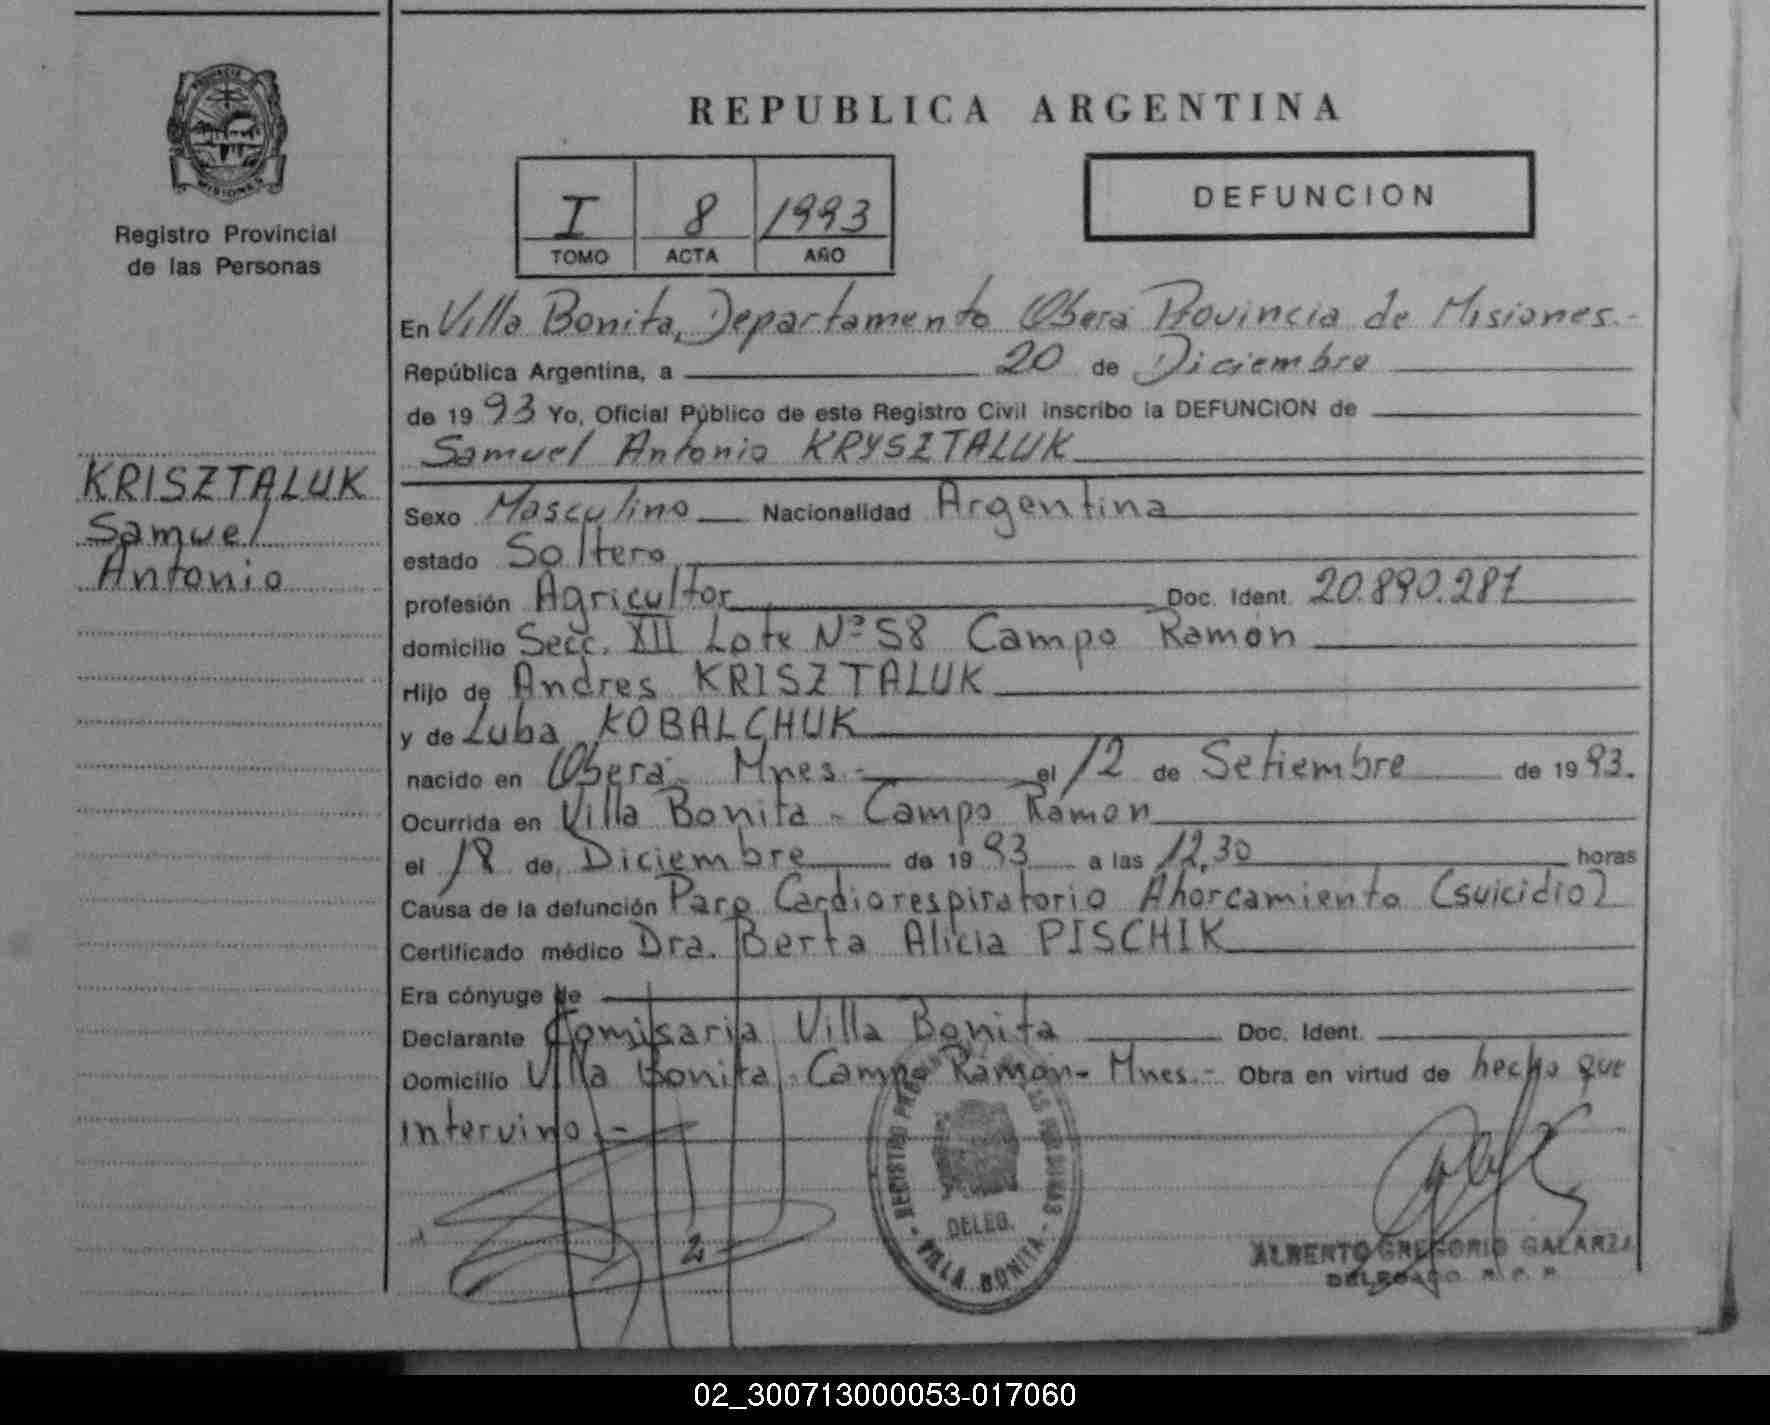 PROVINCIA DE
MISIONES
Registro Provincial
de las Personas
KRISZTALUK
Samuel
Antonio
REPUBLICA ARGENTINA
I 8 1993
TOMO ACTA AÑO
DEFUNCION
En Villa Bonita, Departamento Oberá Provincia de Misiones.-
República Argentina, a 20 de Diciembre
de 1993 Yo, Oficial Público de este Registro Civil inscribo la DEFUNCION de
Samuel Antonio KRYSZTALUK
Sexo Masculino Nacionalidad Argentina
estado Soltero
profesión Agricultor Doc. Ident. 20.890.287
domicilio Secc. XII Lote Nº 58 Campo Ramón
Hijo de Andres KRISZTALUK
y de Luba KOBALCHUK
nacido en Oberá - Mnes.- el 12 de Setiembre de 1993.
Ocurrida en Villa Bonita - Campo Ramon
el 18 de Diciembre de 1993 a las 12,30 horas
Causa de la defunción Paro Cardiorespiratorio Ahorcamiento (suicidio)
Certificado médico Dra. Berta Alicia PISCHIK
Era cónyuge de
Declarante Comisaria Villa Bonita Doc. Ident.
Domicilio Villa Bonita - Campo Ramón - Mnes.- Obra en virtud de hecho que
intervino.-
2
REGISTRO PROVINCIAL DE LAS PERSONAS
DELEG.
- VILLA BONITA -
ALBERTO GREGORIO GALARZA
DELEGADO R. P. P.
02_300713000053-017060